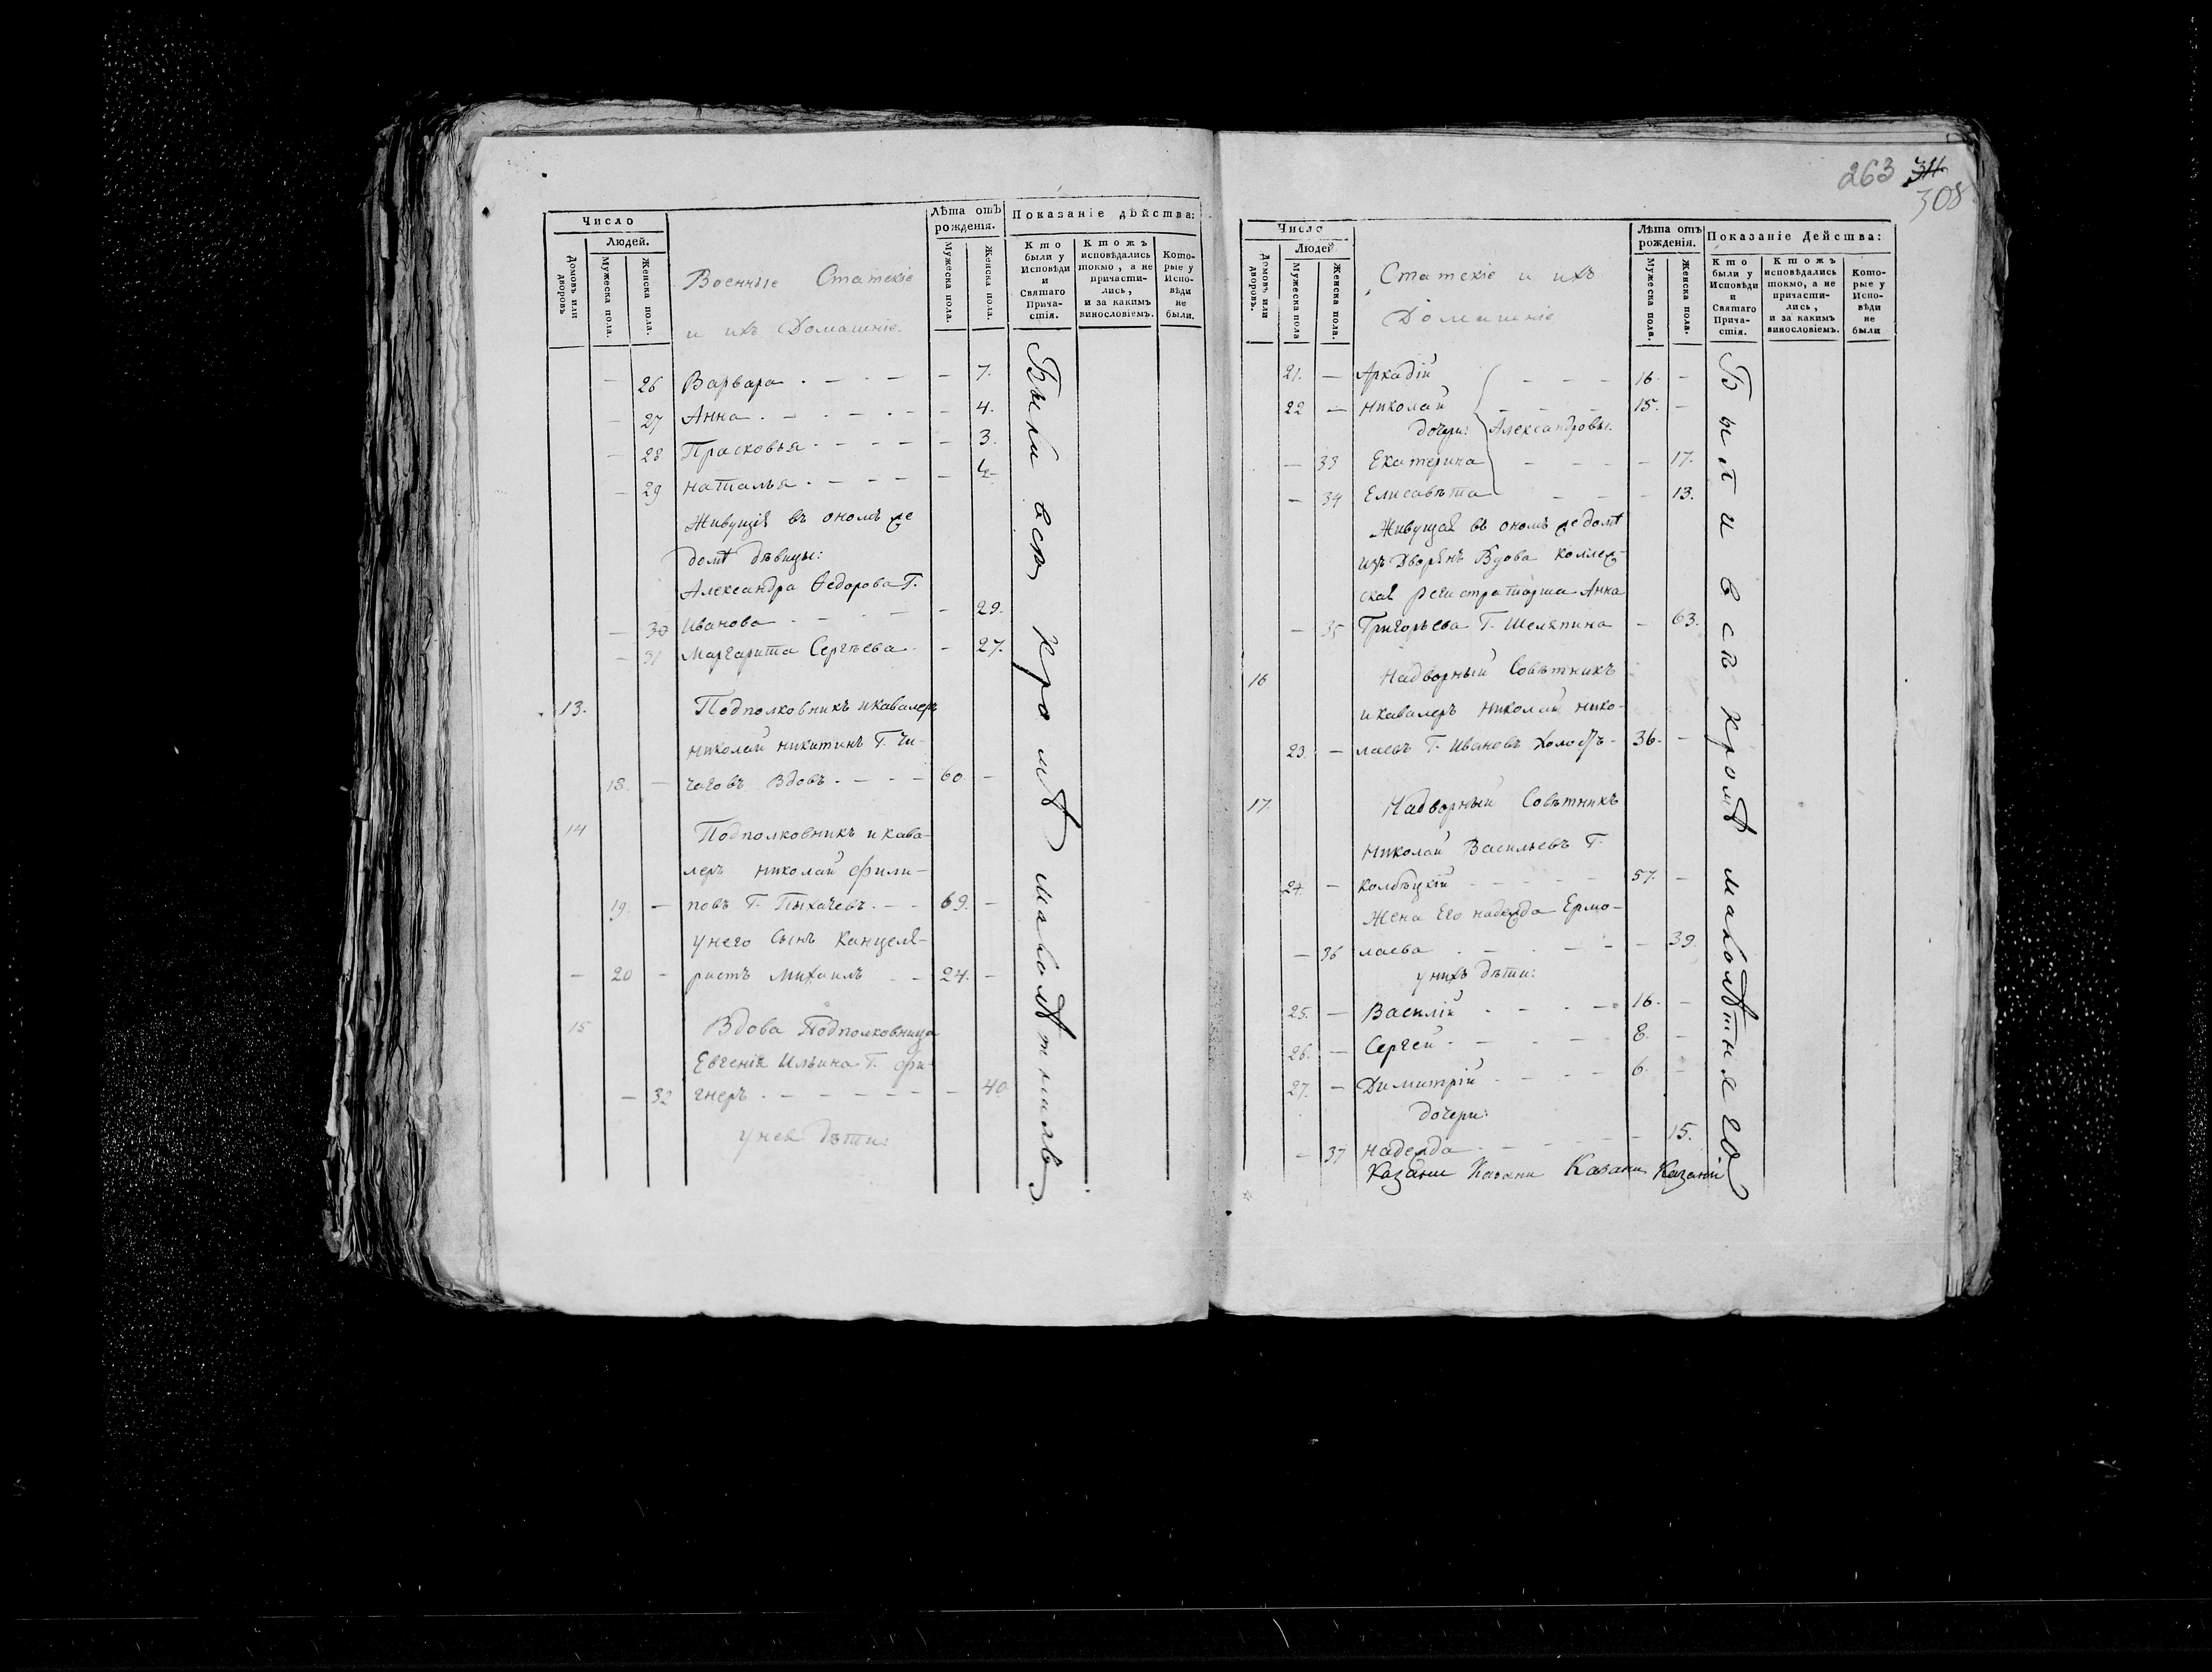 263 311
308
Число
Людей.
Домовъ или дворовъ
Мужеска пола.
Женска пола.
Военные Статскіе
и ихъ Домашніе.
Лѣта отъ рожденія.
Мужеска пола.
Женска пола.
Показаніе дѣйства:
Кто были у Исповѣди и Святаго Прича-стія.
Ктожъ исповѣдались токмо, а не причасти-лись, и за какимъ винословіемъ.
Кото-рые у Испо-вѣди не были.
— 26 Варвара . — . — — 7.
— 27 Анна . — . — . — — 4.
— 28 Прасковья . — — — — 3.
— 29 Наталья . — — — —
Живущія въ ономъ же
домѣ дѣвицы:
Александра Ѳедорова Г.
— 30 Иванова . — . — — — 29.
— 31 Маргарита Сергѣева . — 27.
13. Подполковникъ и кавалеръ
Николай Никитинъ Г. Чи-
18. — чаговъ Вдовъ . — . — — 60. —
14 Подполковникъ и кава-
леръ Николай Фили-
19. — повъ Г. Пыхачевъ . — — 69. —
у него сынъ Канцеля-
— 20 — ристъ Михаилъ — — 24. —
15 Вдова Подполковница
Евгенія Ильина Г. Фи-
— 32 гнеръ . — — — — — — 40.
у нея дѣти:
Были всѣ кромѣ малолѣтныхъ
Число
Людей
Домовъ или дворовъ.
Мужеска пола
Женска пола.
Статскіе и ихъ
Домашніе
Лѣта отъ рожденія.
Мужеска пола.
Женска пола.
Показаніе Действа:
Кто были у Исповѣди и Святаго Прича-стія.
Ктожъ исповѣдались токмо, а не причасти-лись, и за какимъ винословіемъ.
Кото-рые у Испо-вѣди не были
21. — Аркадій — — — 16. —
22 — Николай — — — 15. —
дочери: Александровы.
— 33 Екатерина — — — — 17.
— 34 Елисавѣта — — — 13.
Живущая въ ономъ же домѣ
изъ Дворянъ Вдова Коллеж-
ская регистраторша Анна
— 35 Григорьева Г. Шеляпина — 63.
16 Надворный Совѣтникъ
и кавалеръ Николай Нико-
23. — лаевъ Г. Ивановъ холостъ — 36. —
17. Надворный Совѣтникъ
Николай Васильевъ Г.
24. — — — — — 57. —
Жена его Надежда Ермо-
— 36 лаева . — . — — — 39.
у нихъ дѣти:
25. — Василій . — . — 16. —
26. — Сергей . — . — — 8. —
27. — Димитрій . — — — 6. —
дочери:
— 37 Надежда . — . — — — 15.
Казани Казани Казани Казани
Были всѣ кромѣ